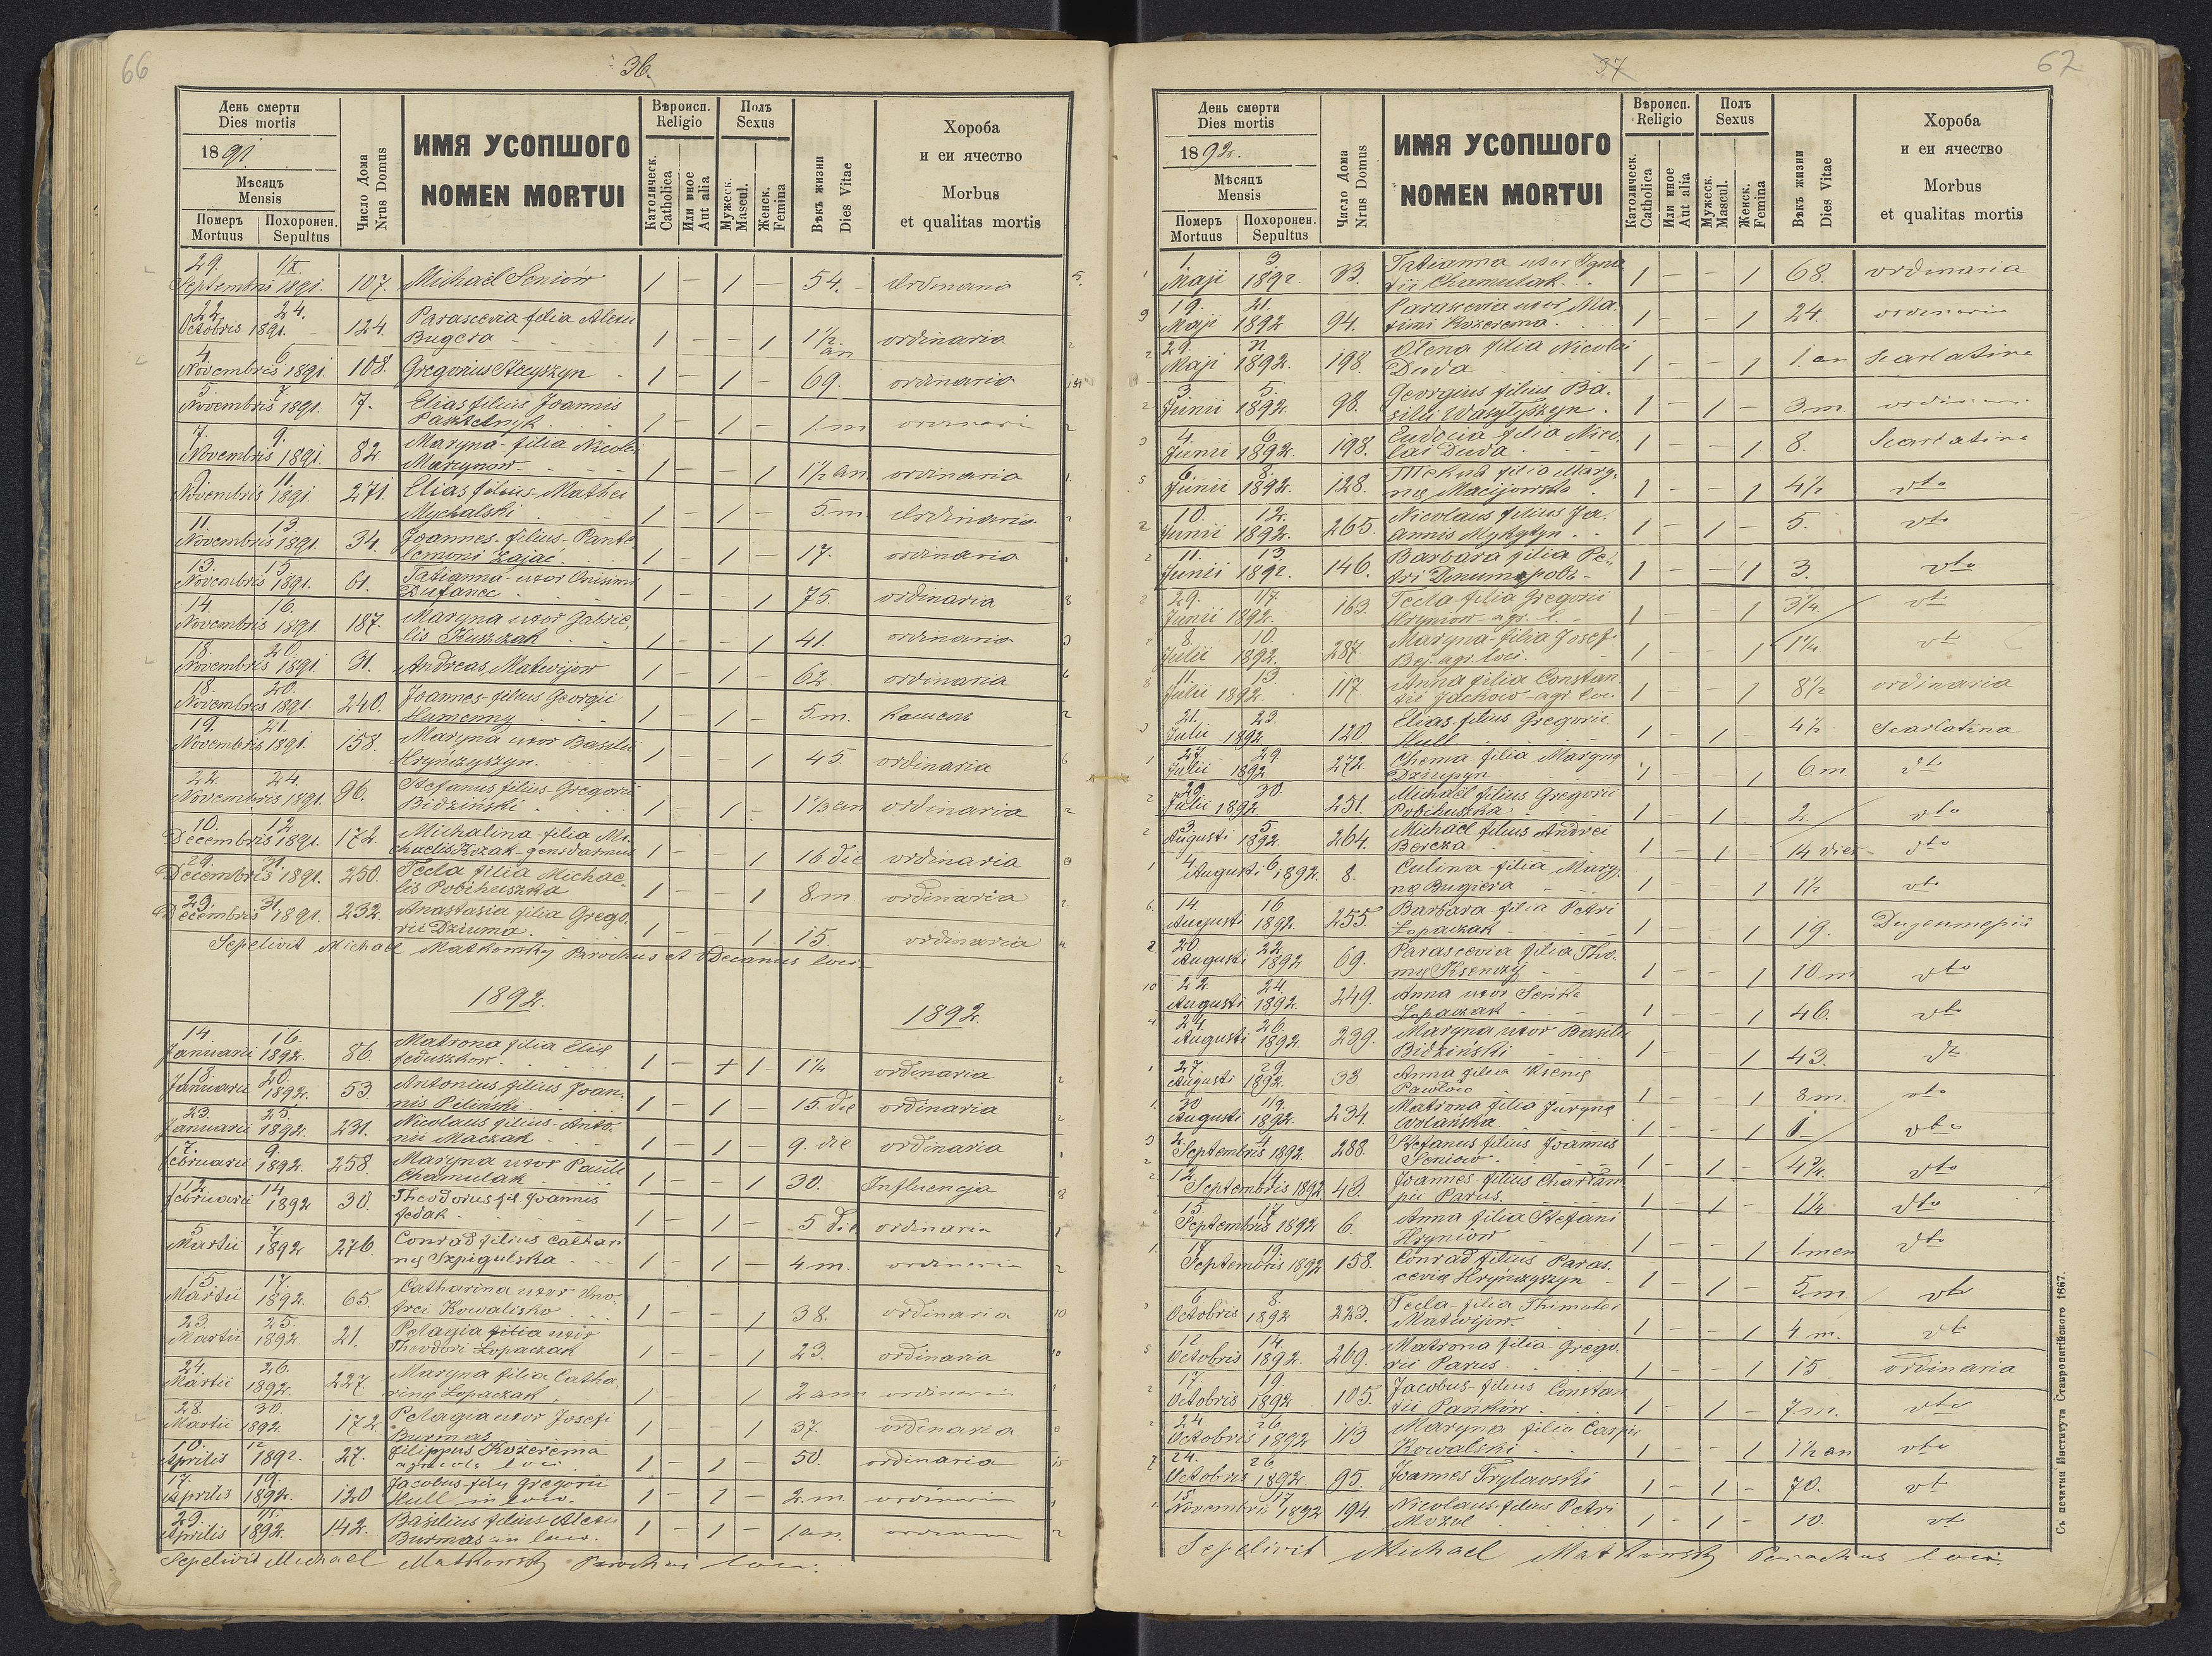 66
36.
День смерти
Dies mortis
1891
Мѣсяцъ
Mensis
Померъ Похоронен.
Mortuus Sepultus
Число Дома
Nrus Domus
ИМЯ УСОПШОГО
NOMEN MORTUI
Вѣроисп.
Religio
Католическ.
Catholica
Или иное
Aut alia
Полъ
Sexus
Мужеск.
Mascul.
Женск.
Femina
Вѣкъ жизни
Dies Vitae
Хороба
и еи ячество
Morbus
et qualitas mortis
29. 1/X
Septembris 1891. 107. Michael Seniów 1 - 1 - 54. ordinaria
22. 24. Parascevia filia Alexii
Octobris 1891. 124. Bugera 1 - - 1 1 1/2 an ordinaria
4. 6.
Novembris 1891. 108. Gregorius Stecyszyn 1 - 1 - 69. ordinaria
5. 7. Elias filius Joannis
Novembris 1891. 7. 1 - 1 - 1. m ordinari
7. 9. Maryna filia Nicolai
Novembris 1891. 82. Marcynow 1 - - 1 1 1/2 an ordinaria
9. 11. Elias filius Mathei
Novembris 1891. 271. Mychalski 1 - 1 - 5. m ordinaria
11. 13. Joannes filius Pante
Novembris 1891. 34. lemoni Zając 1 - 1 - 17. ordinaria
13. 15. Tatianna uxor Onisimi
Novembris 1891. 61. 1 - - 1 75. ordinaria
14. 16. Maryna uxor Gabrie
Novembris 1891. 187. lis 1 - - 1 41. ordinaria
18. 20.
Novembris 1891 31. Andreas Matwijow 1 - 1 - 62 ordinaria
18. 20. Joannes filius Georgii
Novembris 1891. 240. Humenny 1 - 1 - 5. m. кашель
19. 21. Maryna uxor Basilii
Novembris 1891. 158. Hrynczyszyn. 1 - - 1 45. ordinaria
22. 24. Stefanus filius Gregorii
Novembris 1891. 96. Bidziński 1 - 1 - ordinaria
10. 12. Michalina filia Mi
Decembris 1891. 172. chaelis Kozak gensdarmus 1 - - 1 16 die ordinaria
29. 31. Tecla filia Michae
Decembris 1891. 250. lis Pobihuszka 1 - - 1 8. m. ordinaria
29. 31. Anastasia filia Grego
Decembris 1891. 232. rii Dziuma 1 - - 1 15. ordinaria
Sepelivit Michael Matkowsky Parochus et Decanus loci
1892. 1892
14. 16. Matrona filia Eliæ
Januarii 1892. 86. Feduszkow 1 - + 1 - 1 1/4 ordinaria
18. 20. Antonius filius Joan
Januarii 1892. 53. nis Piliński 1 - 1 - 15. die ordinaria
23. 25. Nicolaus filius Anto
Januarii 1892. 231. nii Maczak 1 - 1 - 9. die ordinaria
7. 9. Maryna uxor Pauli
Februarii 1892. 258. Chamulak 1 - - 1 30. Influencja
12. 14 Theodorus fil. Joannis
Februarii 1892 30. Fedak 1 - 1 - 5 die ordinaria
5 7 Conrad filius Cathari
Martii 1892 276. næ Szpigulska 1 - 1 - 4 m. ordinaria
15. 17. Catharina uxor Ono
Martii 1892. 65. frei Kowalisko 1 - - 1 38. ordinaria
23. 25. Pelagia filia uxor
Martii 1892. 21. Theodori Lopaczak 1 - - 1 23. ordinaria
24. 26. Maryna filia Catha
Martii 1892. 227. rinæ Lopaczak 1 - - 1 2 ann ordinaria
28. 30. Pelagia uxor Josefi
Martii 1892. 172. Burmas 1 - - 1 37. ordinaria
10. 12 Filippus Kozerema
Aprilis 1892. 27. agricola loci 1 - 1 - 50. ordinaria
17. 19. Jacobus filius Gregorii
Aprilis 1892. 120 Hull in loco. 1 - 1 - 2. m. ordinaria
29. 1/5. Basilius filius Alexii
Aprilis 1892. 142. Burmas in loco. 1 - 1 - 1 an. ordinaria
Sepelivit Michael Matkowsky Parochus loci.
67
37
День смерти
Dies mortis
1892.
Мѣсяцъ
Mensis
Померъ Похоронен.
Mortuus Sepultus
Число Дома
Nrus Domus
ИМЯ УСОПШОГО
NOMEN MORTUI
Вѣроисп.
Religio
Католическ.
Catholica
Или иное
Aut alia
Полъ
Sexus
Мужеск.
Mascul.
Женск.
Femina
Вѣкъ жизни
Dies Vitae
Хороба
и еи ячество
Morbus
et qualitas mortis
1. 3 Tatianna uxor Igna
Maji 1892. 83. tii Chamulak 1 - - 1 68. ordinaria
19. 21. Parascevia uxor Ma
Maji 1892. 94. ximi Kozerema 1 - - 1 24. ordinaria
29. Olena filia Nicolai
Maji 1892. 198. Duda 1 - - 1 1. an Scarlatina
3 5. Georgius filius Ba
Junii 1892. 98. silii Wasylyszyn 1 - 1 - 3 m
4. 6. Eudocia filia Nico
Junii 1892. 198. lai Duda 1 - - 1 8. Scarlatina
6. 8. filia Mary
Junii 1892. 128. næ Macijowska 1 - - 1 4 1/2 dto
10. 12. Nicolaus filius Jo
Junii 1892. 265. annis Mykytyn 1 - 1 5. dto
11. 13. Barbara filia Pe
Junii 1892. 146. tri 1 - - 1 3. dto
29. 1/7. Tecla filia Gregorii
Junii 1892. 163. Hryniow agr. l. 1 - - 1 3 1/4 dt
8. 10. Maryna filia Josef
Julii 1892. 287. Bej. agr. loci. 1 - - 1 1 1/4 dt
11. 13 Anna filia Constan
Julii 1892. 117. tii Jachow agr. loci 1 - - 1 8 1/2 ordinaria
21. 23. Elias filius Gregorii
Julii 1892 120 Hull 1 - 1 - 4 1/2 Scarlatina
27. 29. Chema filia Maryna
Julii 1892 272. 1 - - 1 6 m dt
29. 30. Michael filius Gregorii
Julii 1892. 251. Pobihuszka 1 - 1 - 2. dto
3 5. Michael filius Andrei
Augusti 1892. 264. Bercza 1 - 1 - 14 dies dto
4. 6 Culina filia Mary
Augusti 1892. 8. næ Bugiera 1 - - 1 1 1/2 dto
14 16 Barbara filia Petri
Augusti 1892. 255 Lopaczak 1 - - 1 19. Дизентерія
20. 22. Parascevia filia Tho
Augusti 1892. 69. mæ 1 - - 1 10 m dto
22. 24. Anna uxor Seńka
Augusti 1892. 249. Lopaczak 1 - - 1 46. dto
24. 26. Maryna uxor Basilii
Augusti 1892. 239. Bidziński 1 - - 1 43. dt
27. 29. Anna filia Kseniæ
Augusti 1892. 33. Pawłow 1 - - 1 8 m. dto
30 1/9. Matrona filia Jurynæ
Augusti 1892. 234. Wolańska 1 - - 1 1 dto
2. 4. Stefanus filius Joannis
Septembris 1892 288. Seniow 1 - 1 - 4 3/4 dto
12. 14. Joannes filius Charlam
Septembris 1892 48. pii Parus. 1 - 1 - 1 1/4 dto
15. 17 Anna filia Stefani
Septembris 1892 6. Hryniow 1 - - 1 1 men dto
17 19. Conrad filius Paras
Septembris 1892 158. ceviæ Hrynczyszyn 1 - 1 - 5. m. dto
6 8. Tecla filia Thimotei
Octobris 1892 223. Matwijow 1 - - 1 4. m. dt
12 14. Matrona filia Grego
Octobris 1892. 269. rii Parus 1 - - 1 15 ordinaria
17. 19. Jacobus filius Constan
Octobris 1892 105. tii Pańkiw 1 - 1 - 7. m. dto
24. 26 Maryna filia Caspri
Octobris 1892 113 Kowalski 1 - - 1 1 1/2 an dto
24. 26
Octobris 1892. 95. Joannes Trylowski 1 - 1 - 70. dt
15. 17 Nicolaus filius Petri
Novembris 1892 194. Mozol 1 - 1 - 10. dt
Sepelivit Michael Matkowsky Parochus loci.
Съ печатни Института Ставропигійского 1867.